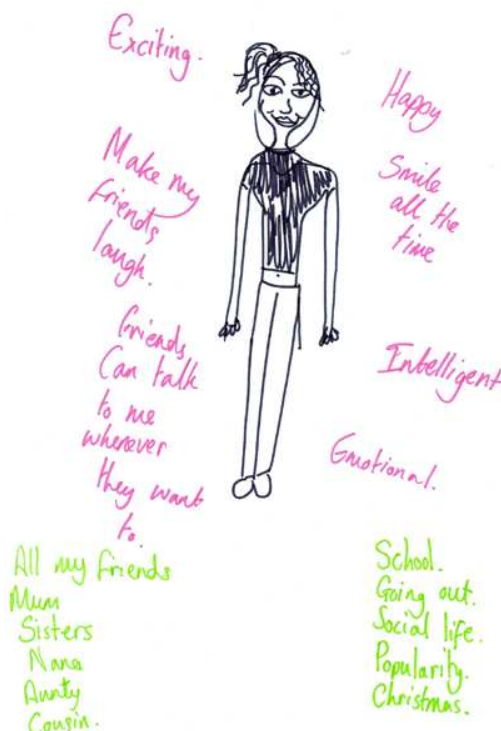 Exciting.
Make my
friends
laugh.
friends
Can talk
to me
wherever
they want
to.
Happy
Smile
all the
time
Intelligent
Emotional.
All my friends
Mum
Sisters
Nana
Aunty
Cousin.
School.
Going out.
Social life.
Popularity.
Christmas.